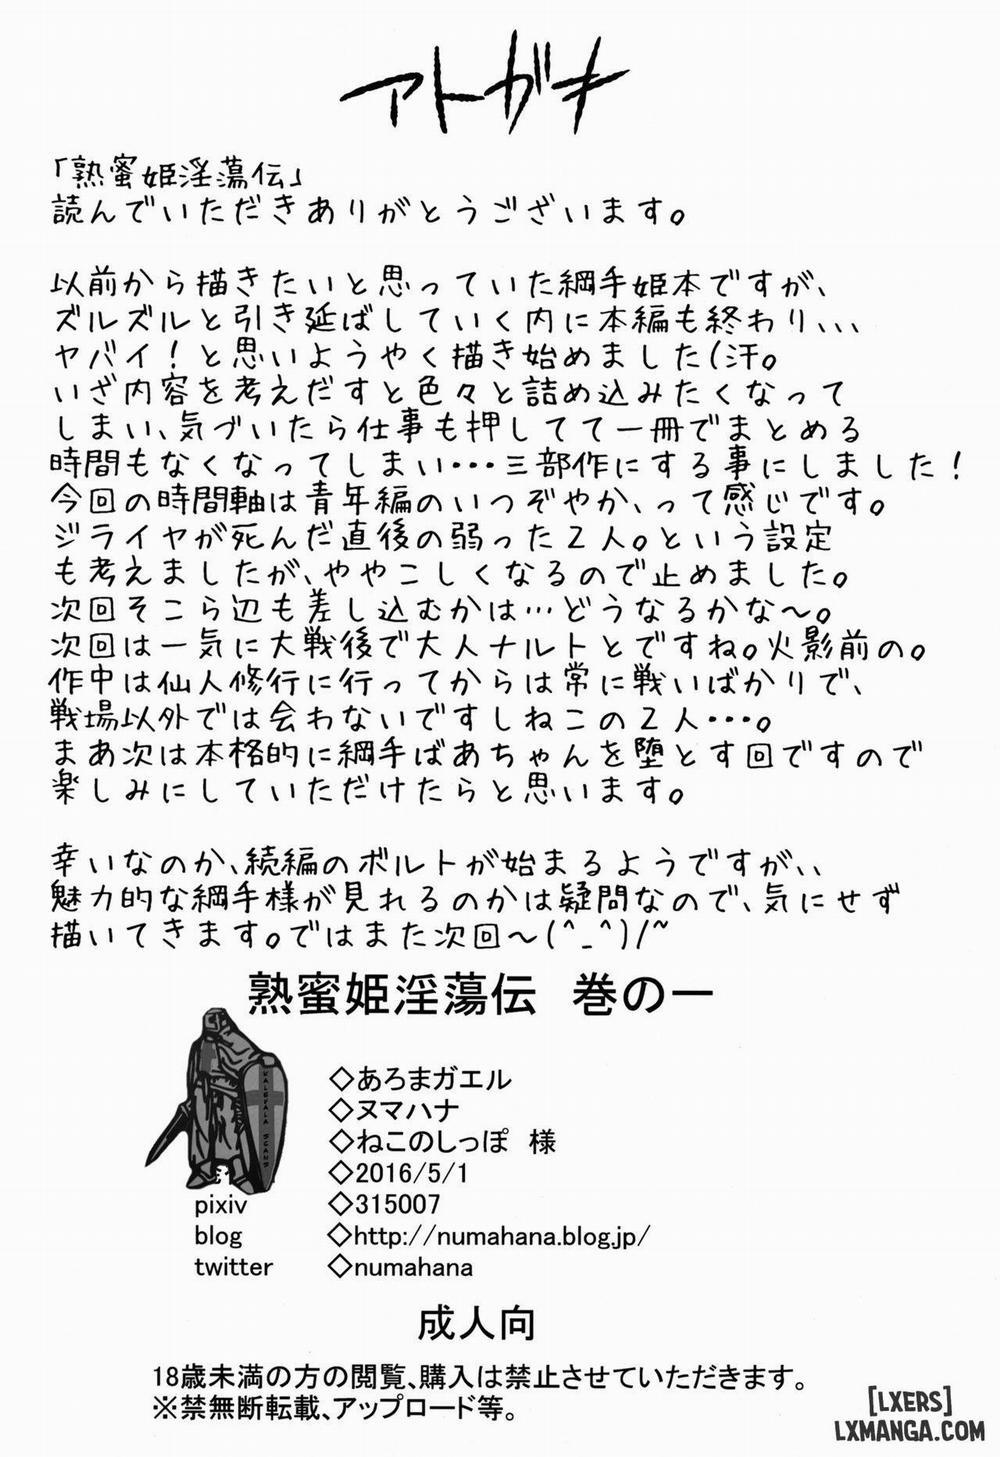 アトガキ
「熟蜜姫淫蕩伝」
読んでいただきありがとうございます。
以前から描きたいと思っていた綱手姫本ですが、
ズルズルと引き延ばしていく内に本編も終わり、、、
ヤバイ！と思いようやく描き始めました(汗。
いざ内容を考えだすと色々と詰め込みたくなって
しまい、気づいたら仕事も押してて一冊でまとめる
時間もなくなってしまい・・・三部作にする事にしました！
今回の時間軸は青年編のいつぞやか、って感じです。
ジライヤが死んだ直後の弱った2人。という設定
も考えましたが、ややこしくなるので止めました。
次回そこら辺も差し込むかは…どうなるかな～。
次回は一気に大戦後で大人ナルトとですね。火影前の。
作中は仙人修行に行ってからは常に戦いばかりで、
戦場以外では会わないですしねこの2人・・・。
まあ次は本格的に綱手ばあちゃんを堕とす回ですので
楽しみにしていただけたらと思います。
幸いなのか、続編のボルトが始まるようですが、、
魅力的な綱手様が見れるのかは疑問なので、気にせず
描いてきます。ではまた次回～(^_^)/~
熟蜜姫淫蕩伝　巻の一
◇あろまガエル
◇ヌマハナ
◇ねこのしっぽ　様
◇2016/5/1
pixiv ◇315007
blog ◇http://numahana.blog.jp/
twitter ◇numahana
KALEVALA SCANS
成人向
18歳未満の方の閲覧、購入は禁止させていただきます。
※禁無断転載、アップロード等。
[LXERS]
LXMANGA.COM